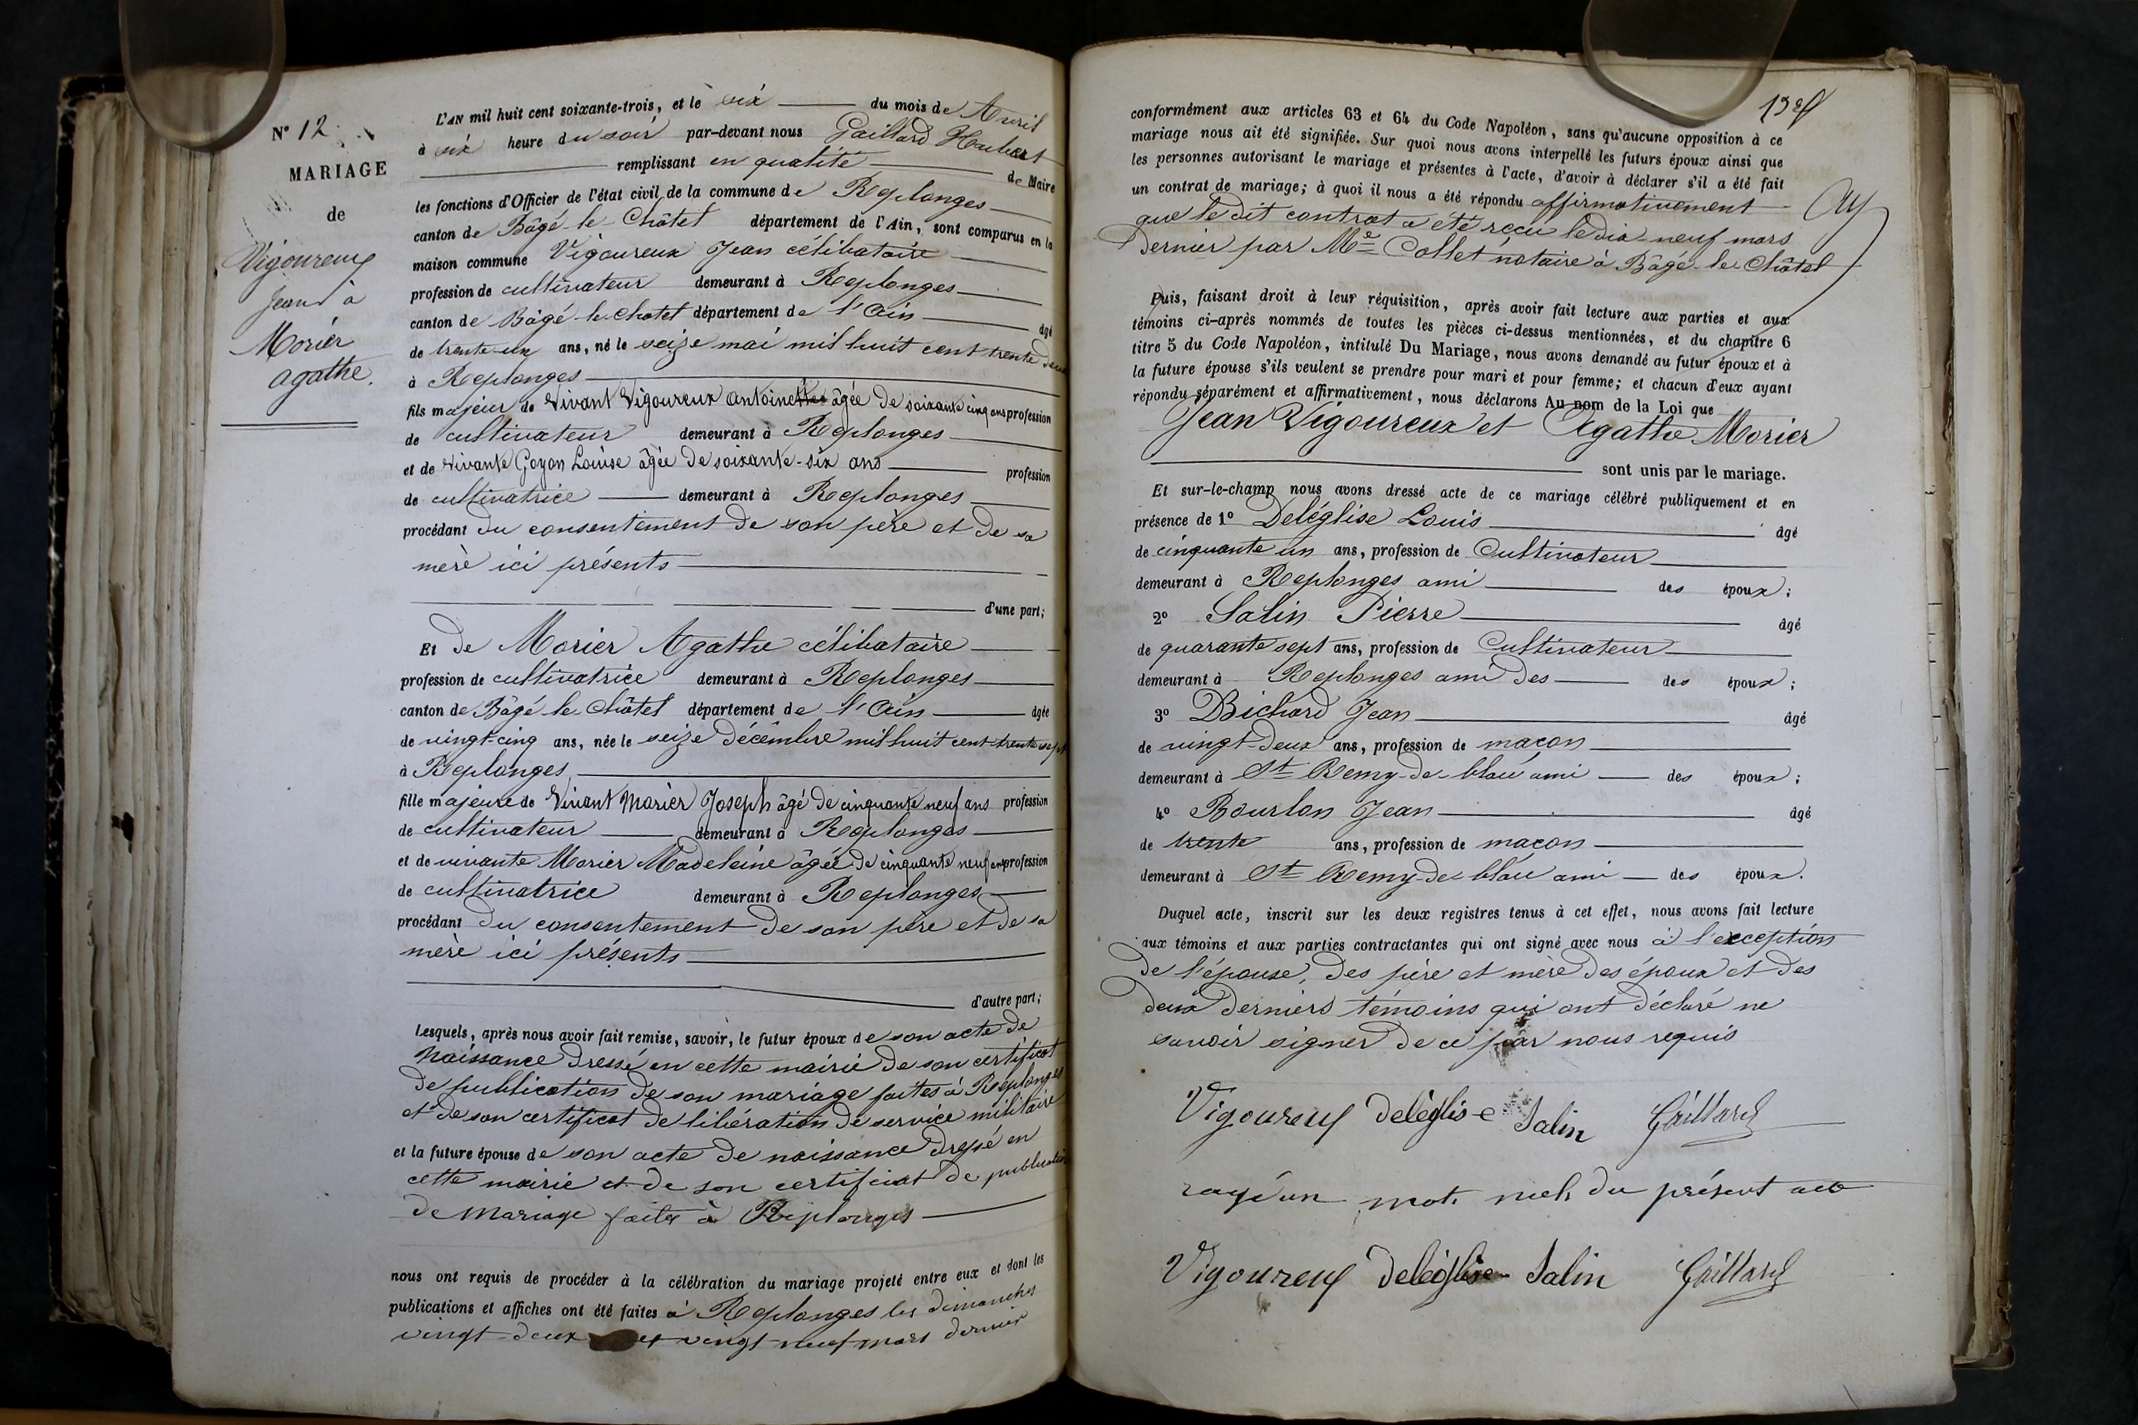 N° 12
MARIAGE
de
Vigoureux
Jean à
Morier
Agathe.
L'AN mil huit cent soixante-trois, et le six du mois de Avril
à six heure du soir par-devant nous Gaillard Hubert
remplissant en qualité de Maire
les fonctions d'Officier de l'état civil de la commune de Replonges
canton de Bâgé-le-Châtel département de l'Ain, sont comparus en la
maison commune Vigoureux Jean célibataire
profession de cultivateur demeurant à Replonges
canton de Bâgé-le-Chatel département de l'Ain âgé
de trente un ans, né le seize mai mil huit cent trente deux
à Replonges
fils majeur de Vivant Vigoureux Antoine âgée de soixante cinq ans profession
de cultivateur demeurant à Replonges
et de vivante Goyon Louise âgée de soixante-six ans profession
de cultivatrice demeurant à Replonges
procédant du consentement de son père et de sa
mère ici présents
d'une part;
Et de Morier Agathe célibataire
profession de cultivatrice demeurant à Replonges
canton de Bâgé-le-Châtel département de l'Ain âgée
de vingt-cinq ans, née le seize décembre mil huit cent trente sept
à Replonges
fille majeure de Vivant Morier Joseph âgé de cinquante neuf ans profession
de cultivateur demeurant à Replonges
et de vivante Morier Madeleine âgée de cinquante neuf ans profession
de cultivatrice demeurant à Replonges
procédant du consentement de son père et de sa
mère ici présents
d'autre part;
Lesquels, après nous avoir fait remise, savoir, le futur époux de son acte de
naissance dressé en cette mairie de son certificat
de publication de son mariage faites à Replonges
et de son certificat de libération de service militaire
et la future épouse de son acte de naissance dressé en
cette mairie et de son certificat de publication
de mariage faites à Replonges
nous ont requis de procéder à la célébration du mariage projeté entre eux et dont les
publications et affiches ont été faites à Replonges les dimanches
vingt-deux et vingt neuf mars dernier
conformément aux articles 63 et 64 du Code Napoléon, sans qu'aucune opposition à ce
mariage nous ait été signifiée. Sur quoi nous avons interpellé les futurs époux ainsi que
les personnes autorisant le mariage et présentes à l'acte, d'avoir à déclarer s'il a été fait
un contrat de mariage; à quoi il nous a été répondu affirmativement
que le dit contrat a été reçu le dix-neuf mars
dernier par Me Collet notaire à Bâgé-le-Châtel
Puis, faisant droit à leur réquisition, après avoir fait lecture aux parties et aux
témoins ci-après nommés de toutes les pièces ci-dessus mentionnées, et du chapitre 6
titre 5 du Code Napoléon, intitulé Du Mariage, nous avons demandé au futur époux et à
la future épouse s'ils veulent se prendre pour mari et pour femme; et chacun d'eux ayant
répondu séparément et affirmativement, nous déclarons Au nom de la Loi que
Jean Vigoureux et Agathe Morier
sont unis par le mariage.
Et sur-le-champ nous avons dressé acte de ce mariage célébré publiquement et en
présence de 1° Deléglise Louis âgé
de cinquante un ans, profession de Cultivateur
demeurant à Replonges ami des époux;
2° Salin Pierre âgé
de quarante sept ans, profession de Cultivateur
demeurant à Replonges ami des des époux;
3° Bichard Jean âgé
de vingt-deux ans, profession de maçon
demeurant à St Remy-de-blau ami des époux;
4° Bourlon Jean âgé
de trente ans, profession de maçon
demeurant à St Remy-de-blau ami des époux.
Duquel acte, inscrit sur les deux registres tenus à cet effet, nous avons fait lecture
aux témoins et aux parties contractantes qui ont signé avec nous à l'exception
de l'épouse, des père et mère des époux et des
deux derniers témoins qui ont déclaré ne
savoir signer de ce par nous requis
Vigoureux deléglise Salin Gaillard
rayé un mot nul du présent acte
Vigoureux deléglise Salin Gaillard